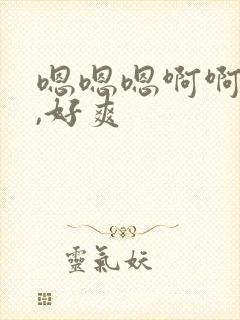 嗯嗯嗯啊啊
,好爽
靈氣妖